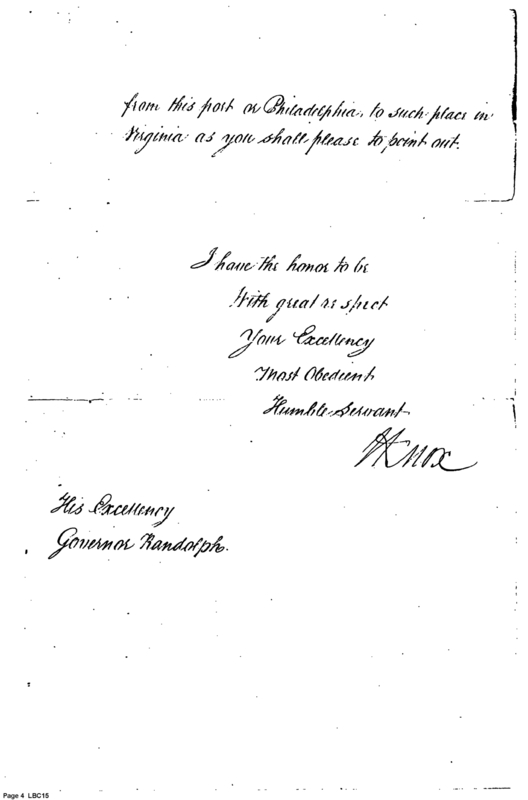 from this post or Philadelphia, to such place in
Virginia as you shall please to point out.
I have the honor to be
With great respect
Your Excellency
Most Obedient
Humble Servant
HKnox
His Excellency
Governor Randolph.
Page 4 LBC15